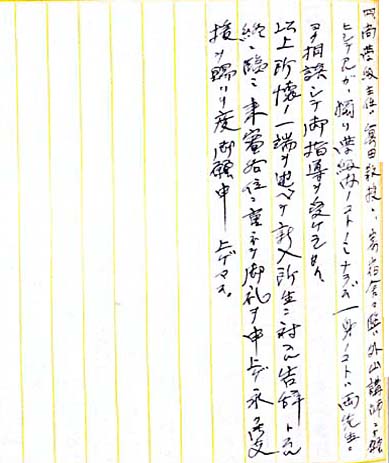 尚学級主任ハ富田教授ニ、寄宿舎々監ハ外山講師ニ御願
ヒシテアルカラ獨リ学級内ノコトノミナラズ一身ノコトハ両先生
ヨク相談シテ御指導ヲ受ケラレ
以上所懐ノ一端ヲ述ベテ新入所生ニ対スル告辞トスル
終ニ臨ミ来賓各位ニ重ネテ御礼ヲ申上ゲ永ク
援ヲ賜ハリ度御願申上ゲマス。